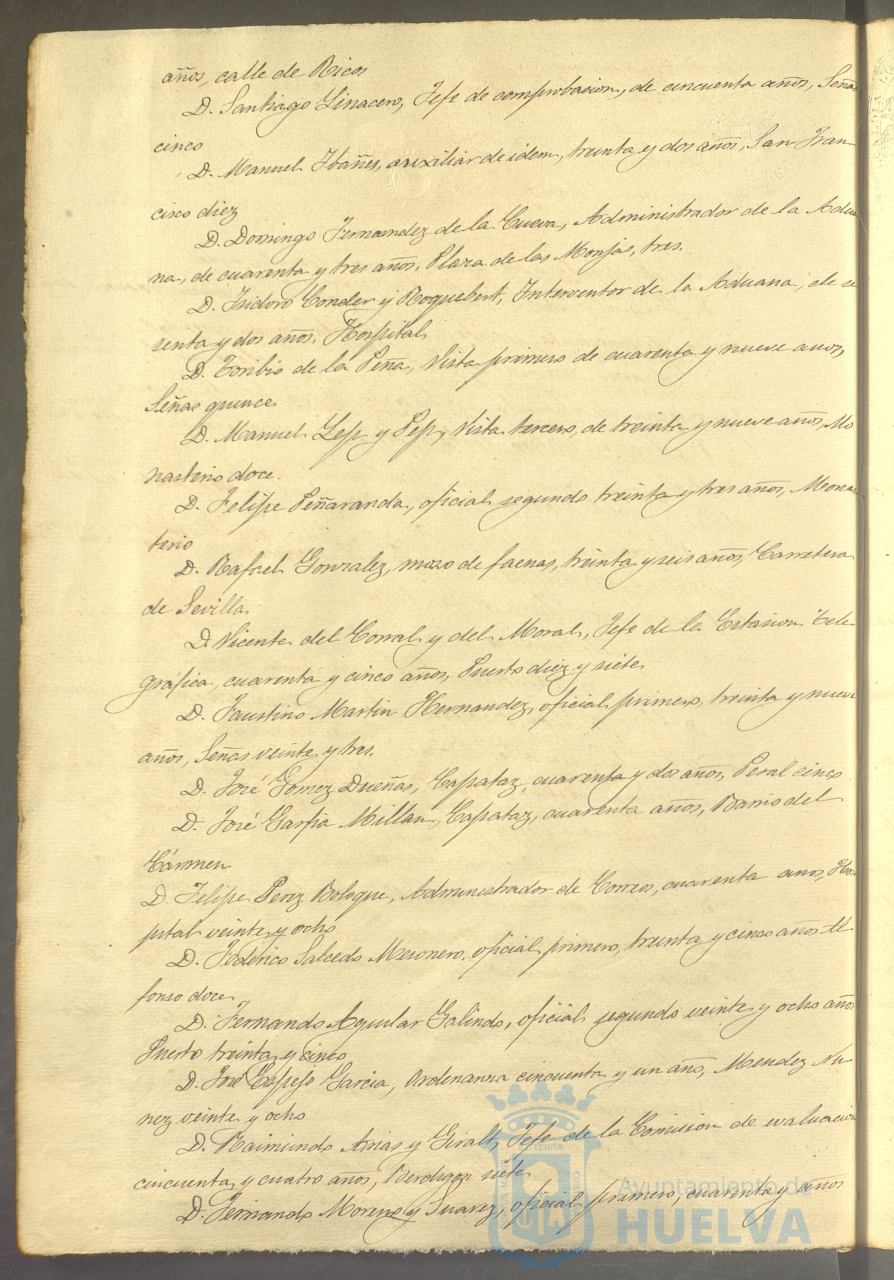 años, calle de Ricos
D. Santiago Linacero, Jefe de comprobacion, de cincuenta años, Señas
cinco
D. Manuel Ibañes, auxiliar de idem, treinta y dos años, San Fran-
cisco diez
D. Domingo Fernandez de la Cueva, Administrador de la Adua
na, de cuarenta y tres años, Plaza de las Monjas, tres.
D. Isidoro Conder y Roquebert, Interventor de la Aduana, de se
senta y dos años. Hospital
D. Toribio de la Peña, Vista primero de cuarenta y nueve años,
Señas quince
D. Manuel y Vista tercero, de treinta y nueve años, Mo
nasterio doce.
D. Felipe Peñaranda, oficial segundo treinta y tres años, Monas
terio
D. Rafael Gonzalez, mozo de faenas, treinta y seis años, Carretera
de Sevilla
D. Vicente del Corral y del Moral, Jefe de la Estasion tele
gráfica, cuarenta y cinco años, Puerto diez y siete
D. Faustino Martin Hernandez, oficial primero, treinta y nueve
años, Señas veinte y tres.
D. José Gomez Dueñas, Capataz, cuarenta y dos años, Peral cinco
D. José Garfia Millan, Capataz, cuarenta años, Barrio del
Cármen
D. Felipe Perez Bologue, Administrador de Correos, cuarenta años, Hos
pital veinte y ocho
D. Federico Salcedo Mesonero, oficial primero, treinta y cinco años Il
fonso doce
D. Fernando Aguilar Galindo, oficial segundo veinte y ocho años
Puerto treinta y cinco
D. José Espejo Garcia, Ordenanza cincuenta y un año, Mendez Nu-
nez veinte y ocho
D. Raimundo Arias y Giralt, Jefe de la Comision de evaluacion
cincuenta y cuatro años, Berdigon siete
D. Fernando Moreno y Suarez, oficial primero, cuarenta y años
Ayuntamiento de
HUELVA